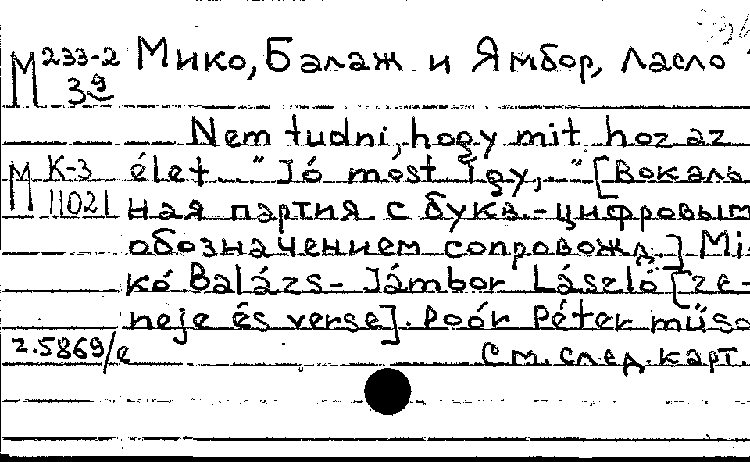 М 233-2 Мико, Балаж и Ямбор, Ласло
39
Nem tudni, hogy mit hoz az
М К-3 élet. "Jó most így, " [Вокаль
11021 ная партия с букв.-цифровым
обозначением сопровожд.] Mi-
kó Balázs- Jámbor László [ze-
neje és verse]. Poór Péter müso
2.5869/е См. след. карт.